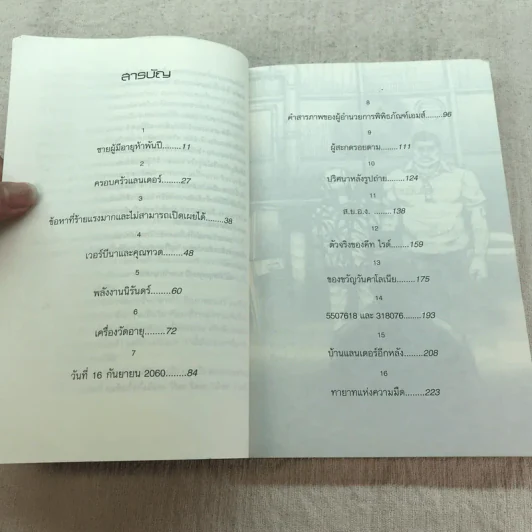 สารบัญ
1
ชายผู้มีอายุห้าพันปี........11
2
ครอบครัวแลนเดอร์........27
3
ข้อหาที่ร้ายแรงมากและไม่สามารถเปิดเผยได้........38
4
เวอร์บีนาและคุณทวด........48
5
พลังงานนิรันดร์........60
6
เครื่องวัดอายุ........72
7
วันที่ 16 กันยายน 2060........84
8
คำสารภาพของผู้อำนวยการพิพิธภัณฑ์เอมส์........96
9
ผู้สะกดรอยตาม........111
10
ปริศนาหลังรูปถ่าย........124
11
ส.ย.อ.ง. ........138
12
ตัวจริงของคีท ไรด์........159
13
ของขวัญวันคาโลเนีย........175
14
5507618 และ 318076........193
15
บ้านแลนเดอร์อีกหลัง........208
16
ทายาทแห่งความมืด........223